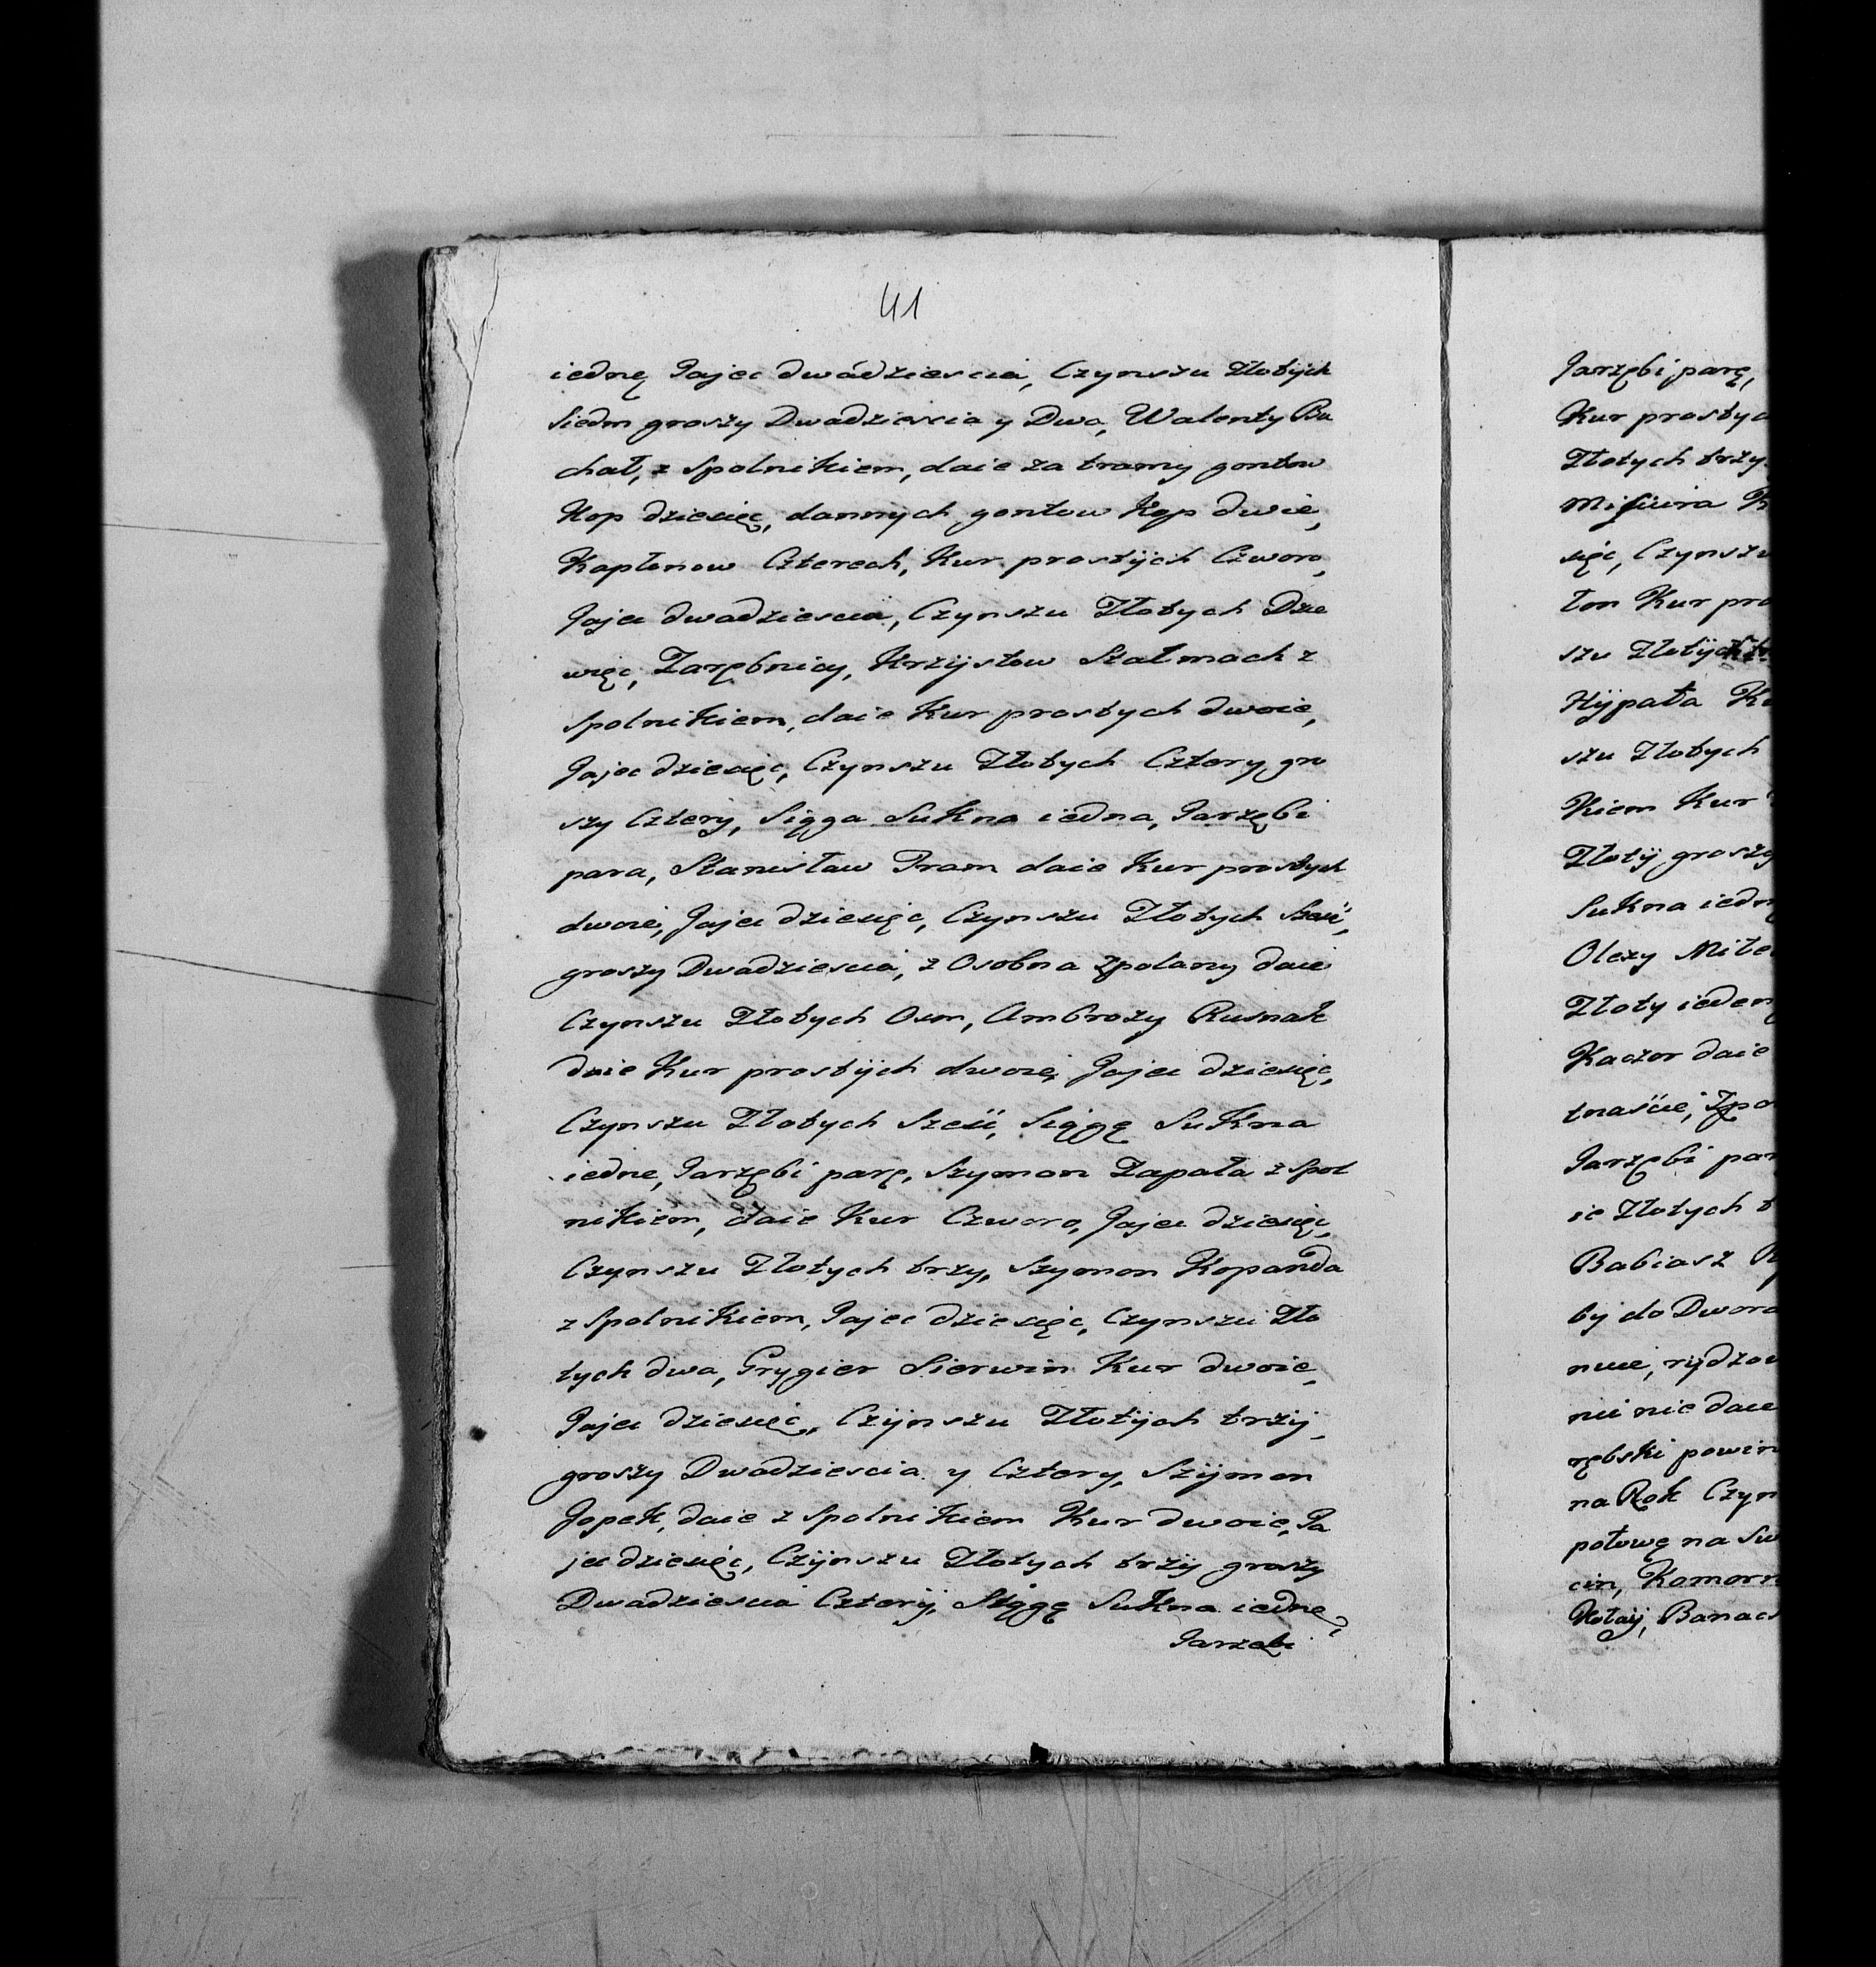 41
iednę Jajec dwadziescia, Czynszu Złotych
Siedm groszy Dwadziescia y Dwa, Walenty Bu
chał, z Spolnikiem, daie za tramy gontow
Kop dziesięc, dannych gontow Kop dwie,
Kapłonow Czterech, Kur prostÿch Czworo,
Jajec dwadziescia, Czynszu Złotych Dzie
więc, Zarębnicy, Krzÿstow Szałmach z
Spolnikiem, daie Kur prostych dwoie,
Jajec dziesięc, Czynszu Złotych Cztery gro
szy Cztery, Siąga Sukna iedna, Jarzębi
para, Stanisław Tram daie Kur prostych
dwoie, Jajec dziesięc, Czynszu Złotych Szesć,
groszy Dwadziescia, z Osobna zpolany daie
Czynszu Złotych Osm, Ambrozy Rusnak
daie Kur prostÿch dwoie, Jajec dziesięc,
Czynszu Złotych Szesć, Siągę Sukna
iedne, Jarzębi parę, Szymon Zapała z Spol
nikiem, daie Kur Czworo, Jajec dziesięc,
Czynszu Złotych trzy, Szymon Kopanda
z Spolnikiem, Jajec dziesięc, Czynszu Zło
tych dwa, Grygier Sierwin Kur dwoie,
Jajec dziesięć, Czÿnszu Złotÿch trzÿ,
groszy Dwadziescia y Cztery, Szÿmon
Jopek, daie z Spolnikiem Kur dwoie, Ja
jec dziesięc, Czÿnszu Złotych trzÿ groszy
Dwadziescia Czterÿ, Siągę Sukna iedne,
Jarzębi
Jarzębi parę,
Kur prostyc
Złotych trzy
Misiura K
sięc, Czynszu
łon Kur pro
szu Złotÿch
Hÿpała K
szu Złotych
kiem Kur
Złotÿ groszy
Sukna iedn
Olexy Mite
Złoty ieden
Kaczor daie
tnaście, Zpo
Jarzębi par
ie Złotych t
Babiasz
by do Dwora
nuie, rÿdzow
nii nie daie
rębski powin
na Rok Czyn
połowę na Sw
cin, Komorn
Kołaÿ, Banac